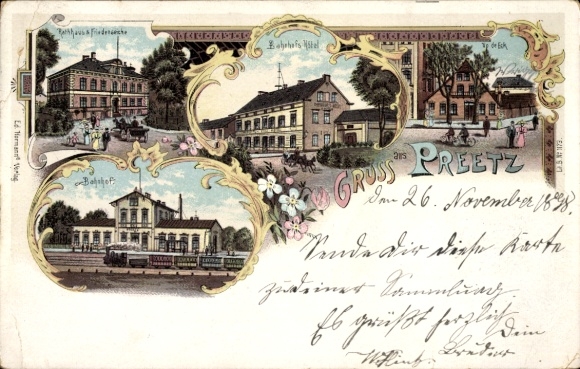 Rathhaus & Friedenseiche
Bahnhofs-Hôtel
Up de Eck
Bahnhof.
Gruss aus Preetz
den 26. November
Sende Dir diese Karte
zu deiner Sammlung
Es grüßt herzlich
Dein
Bruder
Verlag.